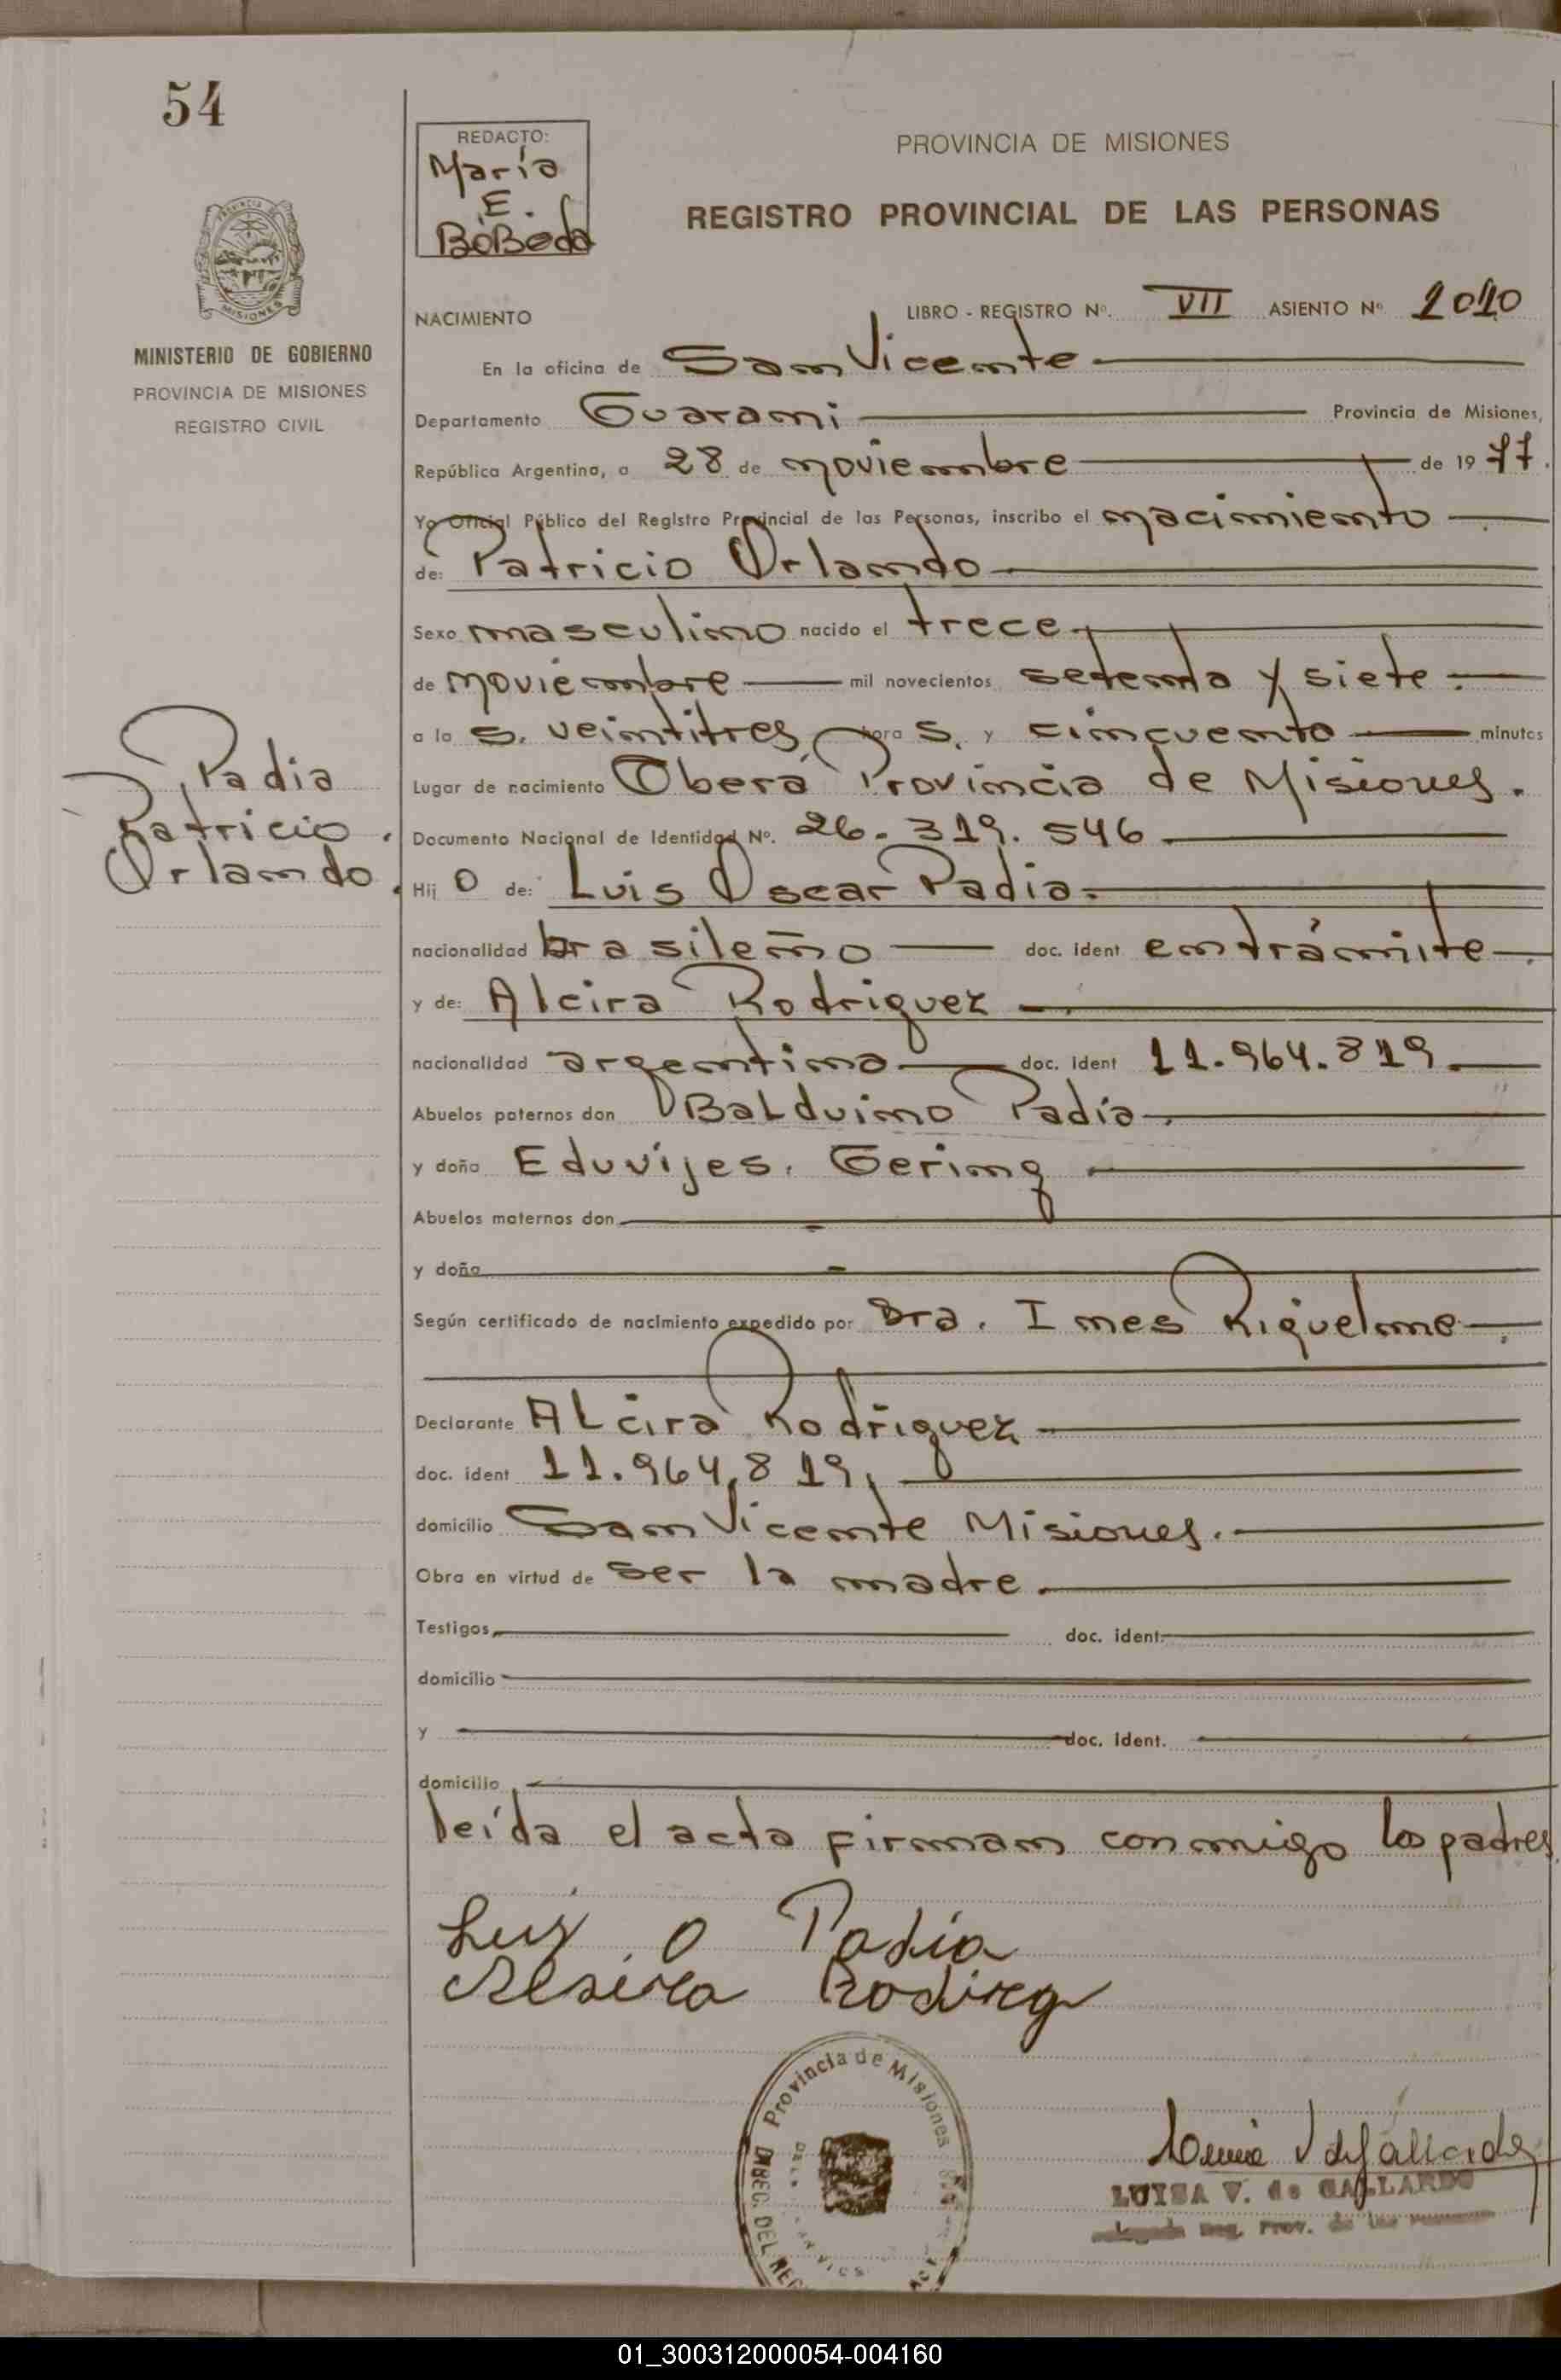 54
REDACTO:
María
E.
BoBeda
PROVINCIA DE MISIONES
REGISTRO PROVINCIAL DE LAS PERSONAS
MISIONES
MINISTERIO DE GOBIERNO
PROVINCIA DE MISIONES
REGISTRO CIVIL
NACIMIENTO LIBRO - REGISTRO Nº. VII ASIENTO Nº 1010
En la oficina de San Vicente
Departamento Guarani Provincia de Misiones,
República Argentina, a 28 de noviembre de 1977.
Yo Oficial Público del Registro Provincial de las Personas, inscribo el nacimiento
de: Patricio Orlando
Sexo masculino nacido el trece
de noviembre mil novecientos setenta y siete.
a la s. veintitres hora s. y cincuenta minutos
Lugar de nacimiento Oberá Provincia de Misiones.
Documento Nacional de Identidad Nº. 26.319.546
Padia
Patricio
Orlando.
Hij o de: Luis Oscar Padia.
nacionalidad brasileño doc. ident en trámite
y de: Alcira Rodriguez
nacionalidad argentina doc. ident 11.964.819
Abuelos paternos don Balduino Padía
y doña Eduvijes. Gering
Abuelos maternos don
y doña
Según certificado de nacimiento expedido por Dra. Ines Riquelme
Declarante Alcira Rodriguez
doc. ident 11.964.819,
domicilio San Vicente Misiones.
Obra en virtud de ser la madre.
Testigos doc. ident.
domicilio
y doc. ident.
domicilio
leída el acta firman conmigo los padres
Luis O Padía
Alsira Rodireg
Provincia de Misiones
DIREC. DEL REG
LUISA V. de GALLARDO
Reg. Prov. de las
01_300312000054-004160